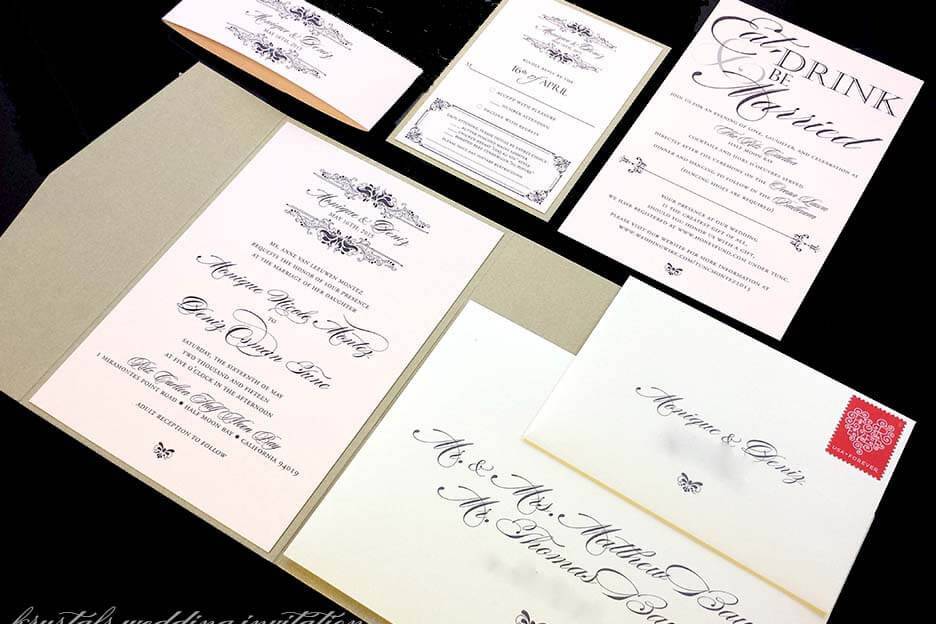 Monique & Deniz
MAY 16TH, 2015
Monique & Deniz
KINDLY REPLY BY THE
16TH OF APRIL
ACCEPT WITH PLEASURE
NUMBER ATTENDING
DECLINE WITH REGRETS
Eat,
DRINK
&
BE
Married
JOIN US FOR AN EVENING OF LOVE, LAUGHTER, AND CELEBRATION AT
The Ritz Carlton
HALF MOON BAY
COCKTAILS AND HORS D'OEUVRES SERVED
DIRECTLY AFTER THE CEREMONY ON THE Ocean Lawn
DINNER AND DANCING TO FOLLOW IN THE Ballroom
(DANCING SHOES ARE REQUIRED)
YOUR PRESENCE AT OUR WEDDING
IS THE GREATEST GIFT OF ALL.
SHOULD YOU WISH TO HONOR US WITH A GIFT,
WE HAVE REGISTERED AT WWW.HONEYFUND.COM UNDER TUNC.
PLEASE VISIT OUR WEBSITE FOR MORE INFORMATION AT
WWW.WEDDINGWIRE.COM/TUNCMONTEZ2015
Monique & Deniz
MAY 16TH, 2015
MS. ANNE VAN LEEUWEN MONTEZ
REQUESTS THE HONOR OF YOUR PRESENCE
AT THE MARRIAGE OF HER DAUGHTER
Monique Nicole Montez
TO
Deniz Osman Tunc
SATURDAY, THE SIXTEENTH OF MAY
TWO THOUSAND AND FIFTEEN
AT FIVE O'CLOCK IN THE AFTERNOON
Ritz Carlton Half Moon Bay
1 MIRAMONTES POINT ROAD • HALF MOON BAY • CALIFORNIA 94019
ADULT RECEPTION TO FOLLOW
Monique & Deniz
USA • FOREVER
Mr. & Mrs. Matthew Bay
Mr. Thomas Bay
krystals wedding invitation